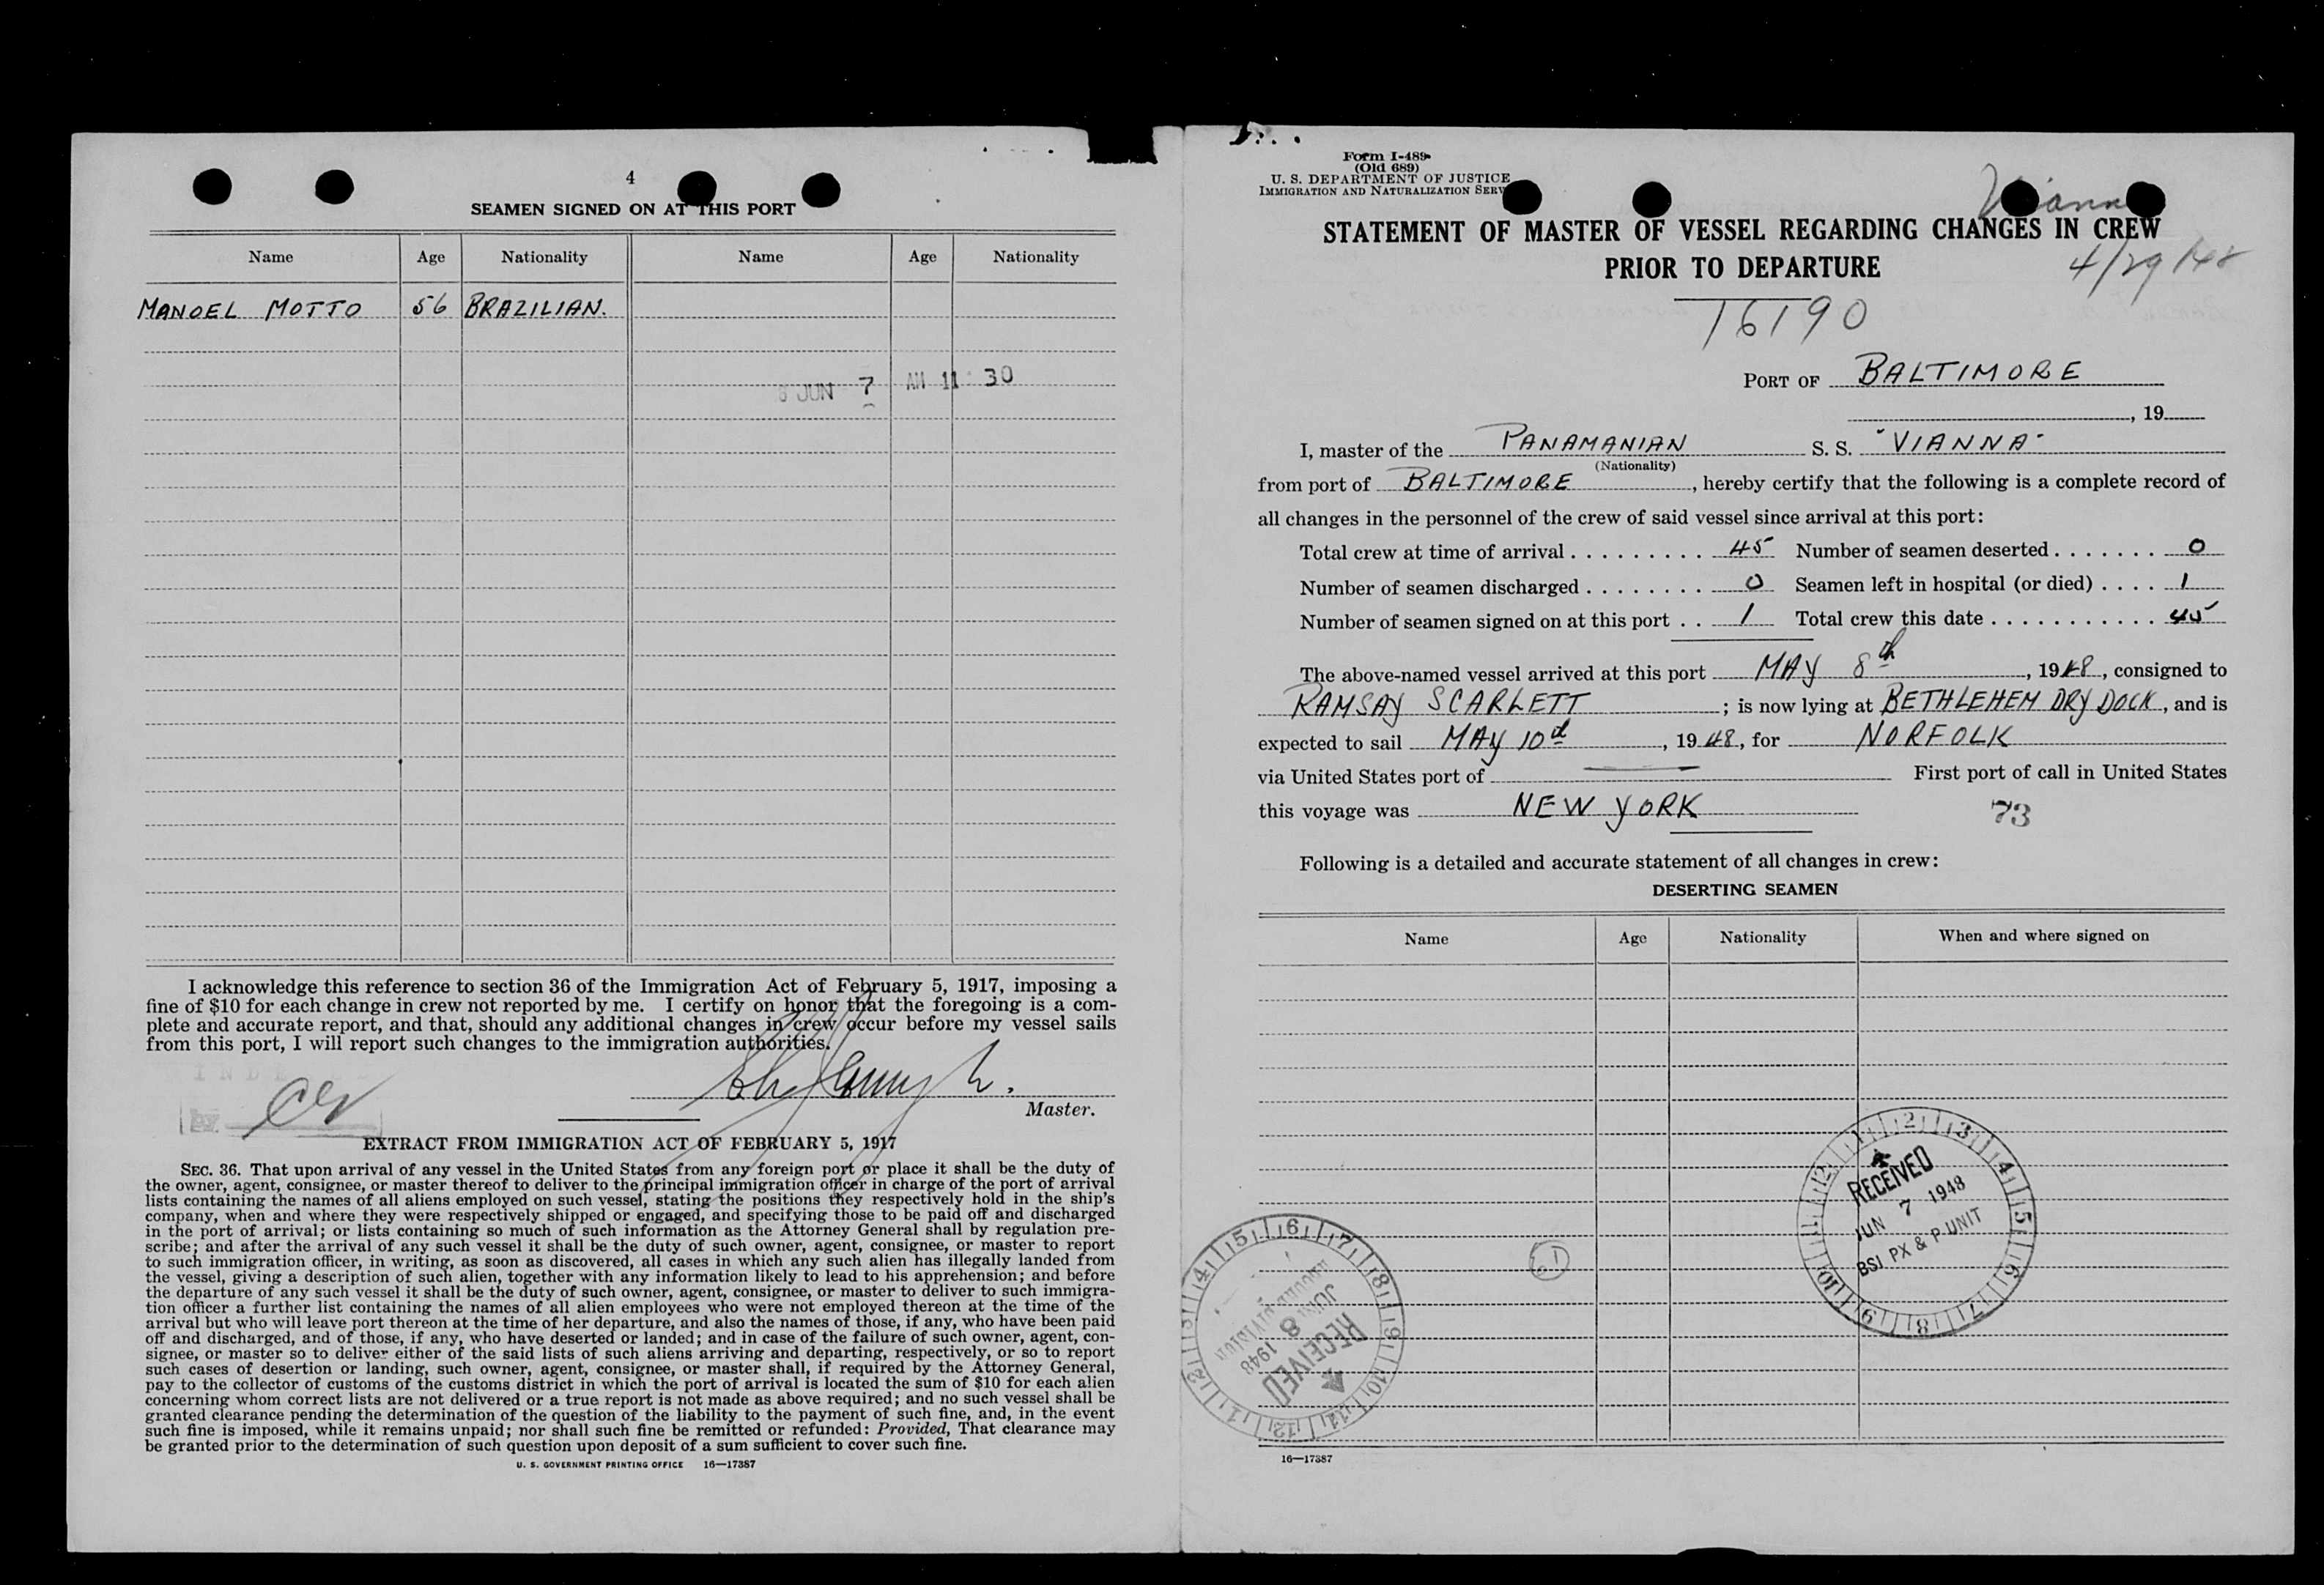 4
SEAMEN SIGNED ON AT THIS PORT
Name Age Nationality Name Age Nationality
MANOEL MOTTO 56 BRAZILIAN.
JUN 7 AM 11 30
I acknowledge this reference to section 36 of the Immigration Act of February 5, 1917, imposing a
fine of $10 for each change in crew not reported by me. I certify on honor that the foregoing is a com-
plete and accurate report, and that, should any additional changes in crew occur before my vessel sails
from this port, I will report such changes to the immigration authorities.
Master.
EXTRACT FROM IMMIGRATION ACT OF FEBRUARY 5, 1917
SEC. 36. That upon arrival of any vessel in the United States from any foreign port or place it shall be the duty of
the owner, agent, consignee, or master thereof to deliver to the principal immigration officer in charge of the port of arrival
lists containing the names of all aliens employed on such vessel, stating the positions they respectively hold in the ship's
company, when and where they were respectively shipped or engaged, and specifying those to be paid off and discharged
in the port of arrival; or lists containing so much of such information as the Attorney General shall by regulation pre-
scribe; and after the arrival of any such vessel it shall be the duty of such owner, agent, consignee, or master to report
to such immigration officer, in writing, as soon as discovered, all cases in which any such alien has illegally landed from
the vessel, giving a description of such alien, together with any information likely to lead to his apprehension; and before
the departure of any such vessel it shall be the duty of such owner, agent, consignee, or master to deliver to such immigra-
tion officer a further list containing the names of all alien employees who were not employed thereon at the time of the
arrival but who will leave port thereon at the time of her departure, and also the names of those, if any, who have been paid
off and discharged, and of those, if any, who have deserted or landed; and in case of the failure of such owner, agent, con-
signee, or master so to deliver either of the said lists of such aliens arriving and departing, respectively, or so to report
such cases of desertion or landing, such owner, agent, consignee, or master shall, if required by the Attorney General,
pay to the collector of customs of the customs district in which the port of arrival is located the sum of $10 for each alien
concerning whom correct lists are not delivered or a true report is not made as above required; and no such vessel shall be
granted clearance pending the determination of the question of the liability to the payment of such fine, and, in the event
such fine is imposed, while it remains unpaid; nor shall such fine be remitted or refunded: Provided, That clearance may
be granted prior to the determination of such question upon deposit of a sum sufficient to cover such fine.
U. S. GOVERNMENT PRINTING OFFICE 16—17387
Form I-489
(Old 689)
U. S. DEPARTMENT OF JUSTICE
IMMIGRATION AND NATURALIZATION SERV
Vianna
STATEMENT OF MASTER OF VESSEL REGARDING CHANGES IN CREW
PRIOR TO DEPARTURE
4/29/48
16190
PORT OF BALTIMORE
, 19
I, master of the PANAMANIAN S. S. "VIANNA"
(Nationality)
from port of BALTIMORE, hereby certify that the following is a complete record of
all changes in the personnel of the crew of said vessel since arrival at this port:
Total crew at time of arrival 45 Number of seamen deserted 0
Number of seamen discharged 0 Seamen left in hospital (or died) 1
Number of seamen signed on at this port 1 Total crew this date 45
The above-named vessel arrived at this port MAY 8th, 1948, consigned to
RAMSAY SCARLETT; is now lying at BETHLEHEM DRY DOCK, and is
expected to sail MAY 10th, 1948, for NORFOLK
via United States port of First port of call in United States
this voyage was NEW YORK
73
Following is a detailed and accurate statement of all changes in crew:
DESERTING SEAMEN
Name Age Nationality When and where signed on
RECEIVED
JUN 7 1948
BSI PX & P UNIT
RECEIVED
JUN 8 1948
16—17387